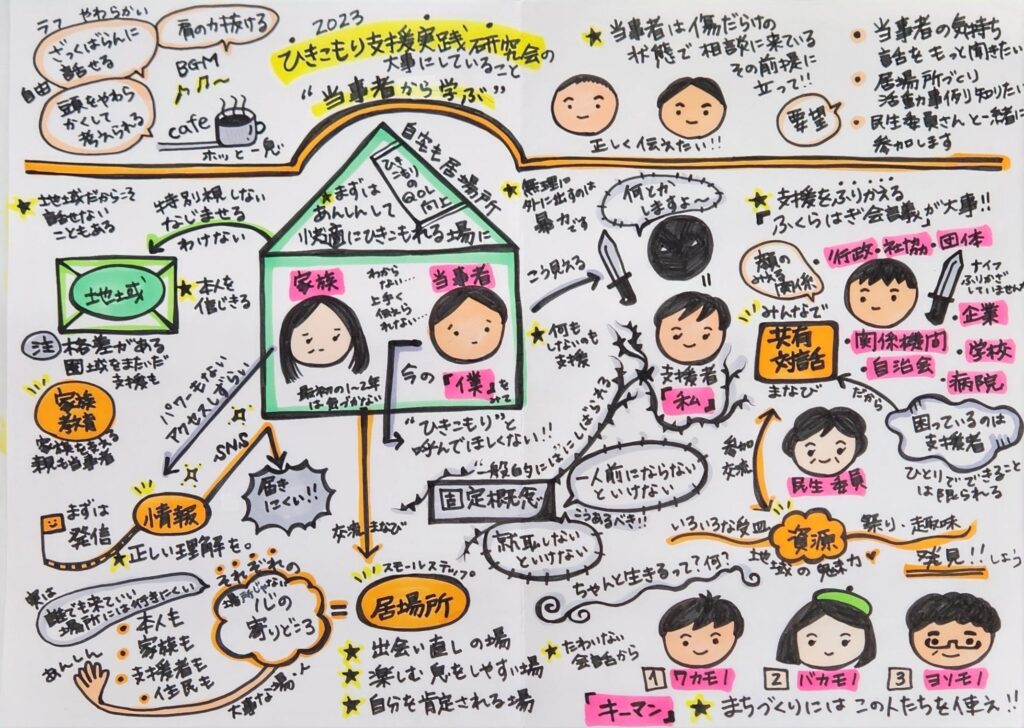 ラフ やわらかい
ざっくばらんに
話せる
自由
頭をやわら
かくして
考えられる
肩の力抜ける
BGM
cafe
ホッと一息
2023
ひきこもり支援実践研究会の
大事にしていること
"当事者から学ぶ"
当事者は傷だらけの
状態で相談に来ている
その前提に
立って!!
正しく伝えたい!!
要望
・当事者の気持ち
話をもっと聞きたい
・居場所づくり
活動事例り知りたい
・民生委員さんと一緒に
参加します
地域だからこそ
話せない
こともある
特別視しない
なじませる
わけない
地域
本人を
信じきる
注 格差がある
圏域をまたいだ
支援も
家族
教育
家族を支える
親も当事者
自宅も居場所
ひきこもりの
QOL
向上
まずは
あんしんして
快適にひきこもれる場に
家族
わから
ない…
上手く
伝えら
れない…
当事者
最初の1~2年
は気づかない
今の『僕』を
みて
"ひきこもり"と
呼んでほしくない!!
パワーもない
アクセスしずらい
SNS
届き
にくい!!
情報
まずは
発信
正しい理解を。
交流・まなび
無理に
外に出すのは
暴力です
何とか
しますよ~
こう見える
何も
しないのも
支援
支援者
『私』
一般的にはにしばられる
固定概念
一人前にならない
といけない
こうあるべき!!
就職しない
といけない
支援をふりかえる
『ふくらはぎ会議』が大事!!
顔の
みえる
関係
行政・社協・団体
ナイフ
ふりかざ
していませんか
みんなで
共有
対話
まなび
・企業
・関係機関
・学校
・自治会
病院
だから
困っているのは
支援者
ひとりでできること
は限られる
参加
交流
民生委員
いろいろな受皿
資源
祭り・趣味
地域の魅力
発見!!しよう
実は
誰でも来ていい
場所には行きにくい
あんしん
・本人も
・家族も
・支援者も
・住民も
それぞれの
場所じゃない
心の
寄りどころ
大事な場・人
=
スモールステップ
居場所
出会い直しの場
楽しむ息をしやすい場
自分を肯定される場
ちゃんと生きるって?何?
たわいない
会話から
1 ワカモノ
2 バカモノ
3 ヨソモノ
『キーマン』
まちづくりにはこの人たちを使え!!